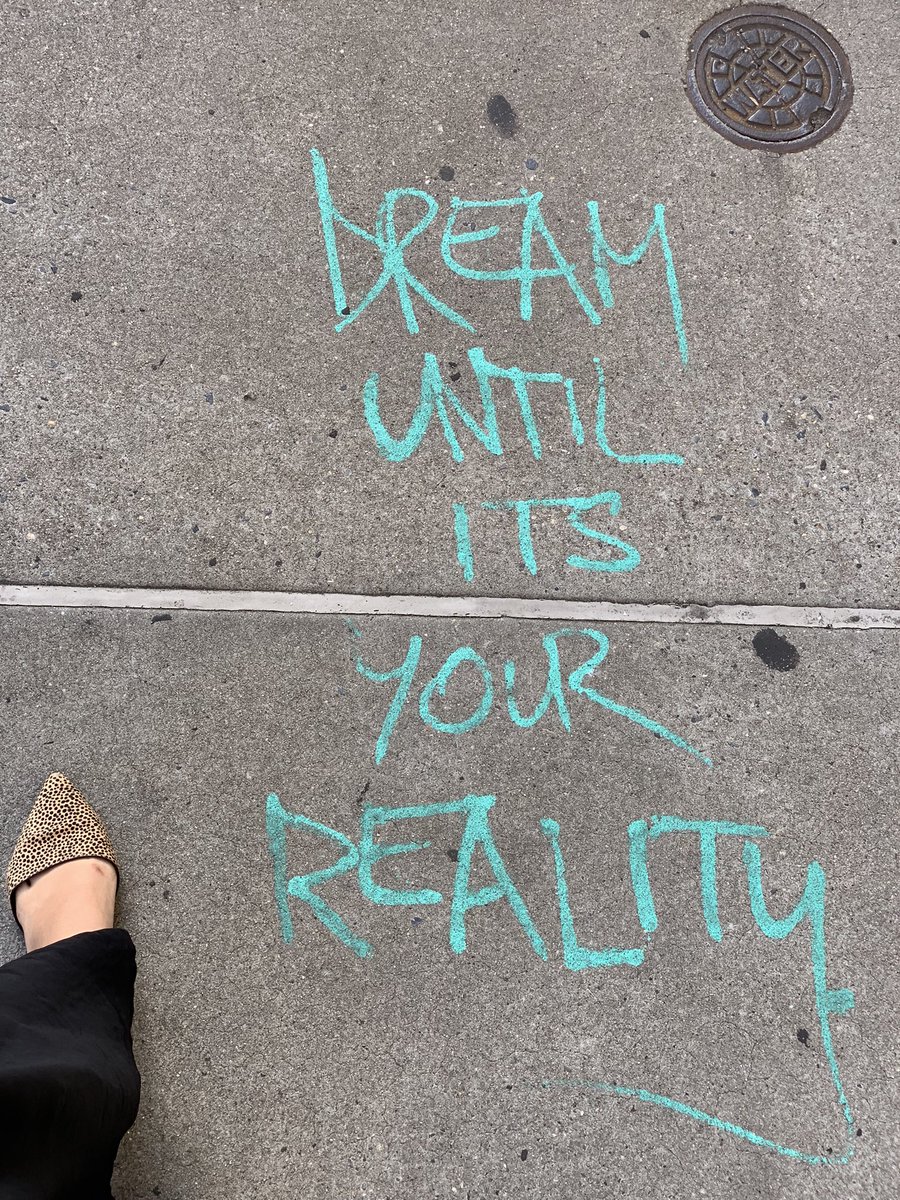 WATER
DREAM
UNTIL
ITS
YOUR
REALITY